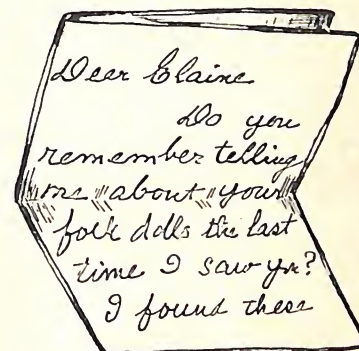 Dear Elaine
Do you
remember telling
me about your
folk dolls the last
time I saw you?
I found these